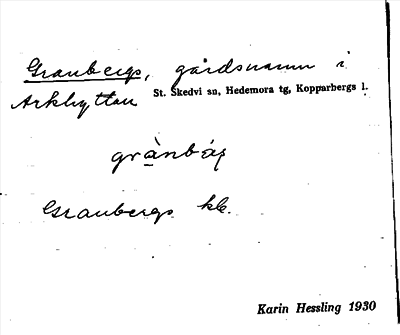 Granbergs, gårdsnamn i
Arkhyttan St. Skedvi sn, Hedemora tg, Kopparbergs l.
grànbáʃ
Granbergs kb.
Karin Hessling 1930